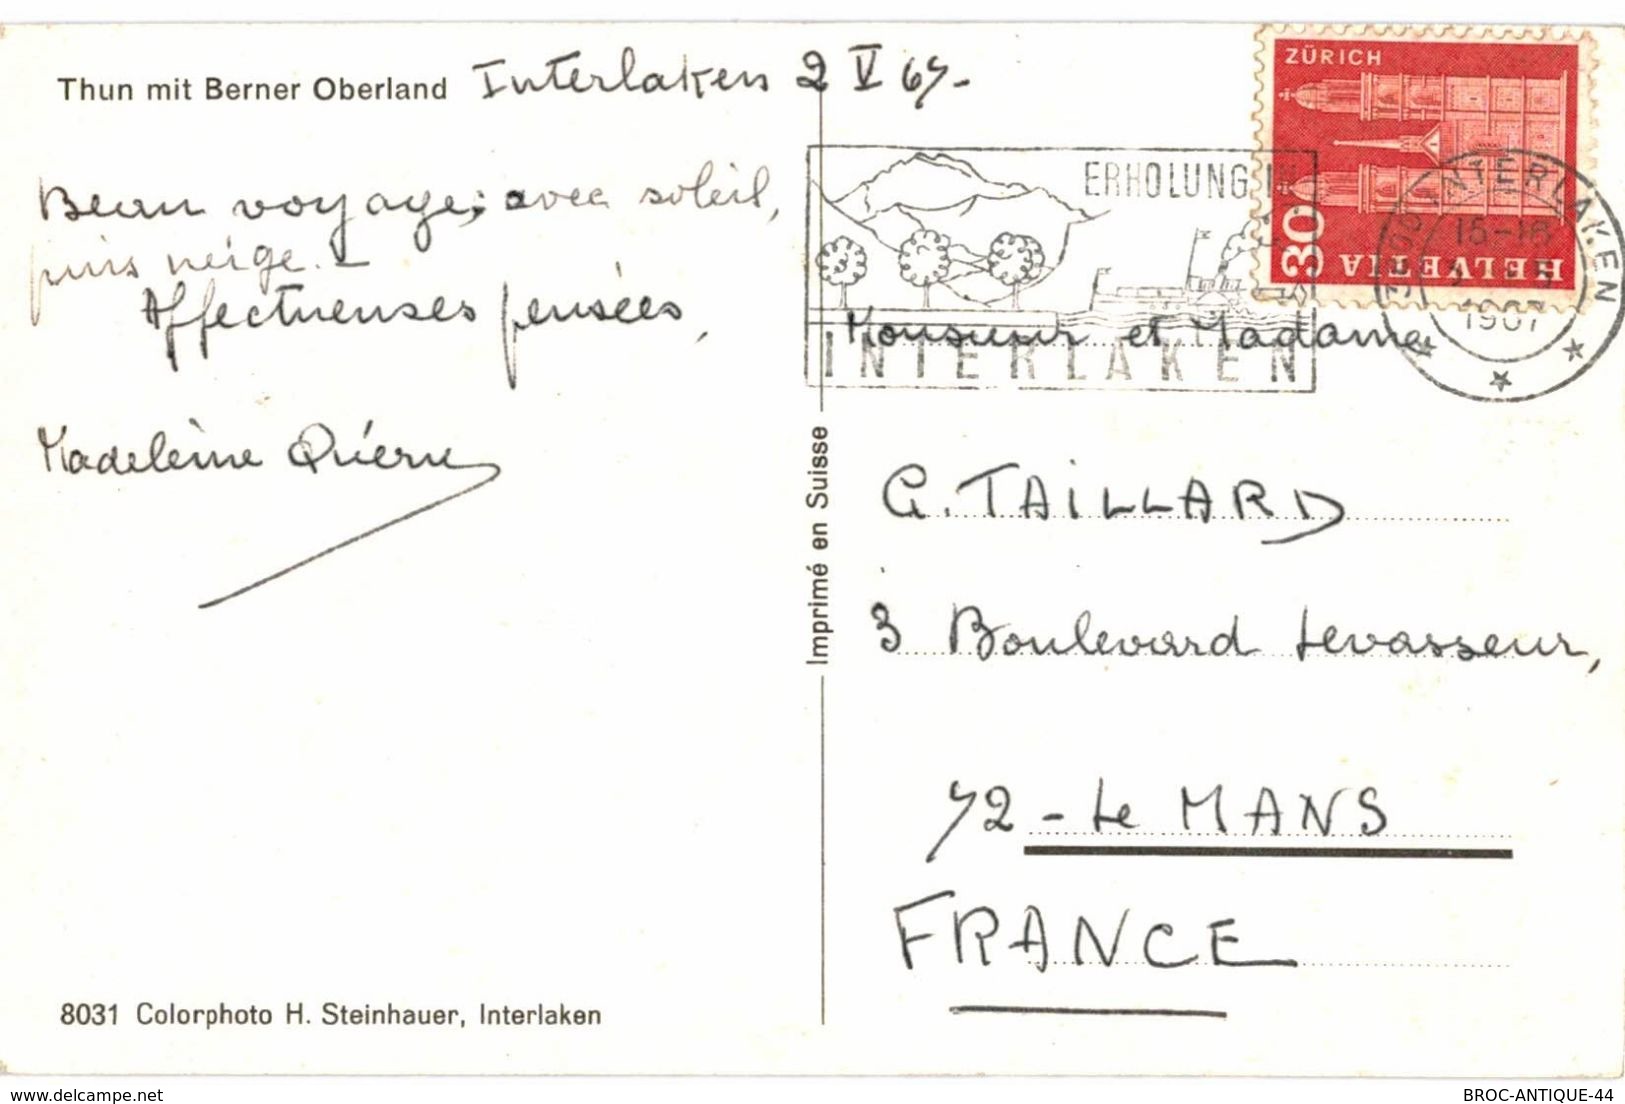 Thun mit Berner Oberland
Interlaken 2 V 67-
Beau voyage, avec soleil,
puis neige. -
Affectueuses pensées,
Madeleine
ZÜRICH
30
HELVETIA
ERHOLUNG
INTERLAKEN
INTERLAKEN
15-16
1967
Monsieur et Madame
G. TAILLARD
3 Boulevard Levasseur,
72 - Le MANS
FRANCE
Imprimé en Suisse
8031 Colorphoto H. Steinhauer, Interlaken
delcampe.net
BROC-ANTIQUE-44